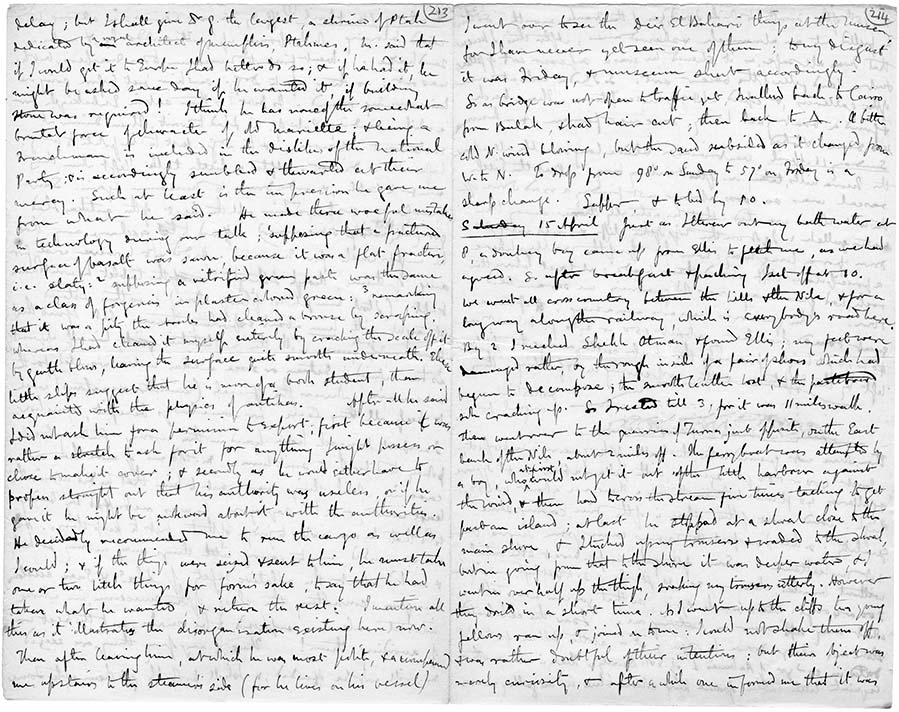 213
delay; but I shall give the largest, a shrine of Ptah
dedicated by an architect of Memphis, Ptahmes, M. said that
if I would get it to Europe I had better do so; & if he had it, he
might be asked some day if he wanted it, if building
stone was required! I think he has some of the somewhat
brutal force of character of old Mariette, & being a
Frenchman is included in the dislike of the National
Party, & is accordingly snubbed & thwarted at their
mercy. Such at least is the impression he gave me
from what he said. He made three woeful mistakes
in technology during our talk; supposing that a fractured
surface of basalt was sawn because it was a flat fracture,
i.e. slaty: 2 supposing a vitrified green paste was the same
as a class of forgeries in plaster colored green: 3 remarking
that it was a pity the Arabs had cleaned a bronze by scraping,
whereas I had cleaned it myself entirely by cracking the scale off it
by gentle blows, leaving the surface quite smooth underneath. These
little slips suggest that he is more of a book student, than
acquainted with the physics of antikas. After all he said
I did not ask him for a permission to export; first because it was
rather a stretch to ask for it for anything I might possess or
chose to make it cover; & secondly as he would either have to
profess straight out that his authority was useless, or if he
gave it he might be awkward about it with the authorities.
He decidedly recommended me to run the cargo as well as
I could; & if the things were seized & sent to him, he must take
one or two little things for form's sake, to say that he had
taken what he wanted & return the rest. I mention all
this as it illustrates the disorganization existing here now.
Then after leaving him, at which he was most polite, & accompanied
me upstairs to the steamer's side (for he lives on his vessel)
214
I went over to see the Deir El Bahari things, at the museum,
for I have never yet seen one of them; to my disgust
it was Friday, & museum shut accordingly.
So as bridge was not open to traffic yet, I walked back to Cairo
from Bulak, & had hair cut; then back to A. A bitter
cold N. wind blowing, but the sand subsided as it changed from
W. to N. To drop from 98° on Sunday to 57° on Friday is a
sharp change. Supper & to bed by 10.
Saturday 15 April Just as I threw out my bath water at
8, a donkey boy came up from Ellis to fetch me, as we had
agreed. So after breakfast & packing I set off at 10.
We went all cross country between the hills & the Nile, & for a
long way along the railway, which is everybody's road here.
By 2 I reached Shekh Otman & found Ellis; my feet were
damaged rather, by through inside of a pair of shoes which had
begun to decompose; the smooth leather lost, & the
sole cracking up. So I rested till 3, for it was 11 miles walk.
Then went over to the quarries of Turra just opposite, on the East
bank of the Nile about 2 miles off. The ferry boat was attempted by
a boy, who could not get it out of the little harbour against
the wind, & then had to cross the stream five times tacking to get
past an island; at last he stopped at a shoal close to the
main shore, & I tucked up my trousers & waded to the shoal,
but in going from that to the shore it was deeper water, & I
went in over half up the thigh, soaking my trousers utterly. However
they dried in a short time. As I went up to the cliffs two young
fellows ran up, & joined on to me. I could not shake them off,
& was rather doubtful of their intentions; but their object was
merely curiosity, & after a while one informed me that it was